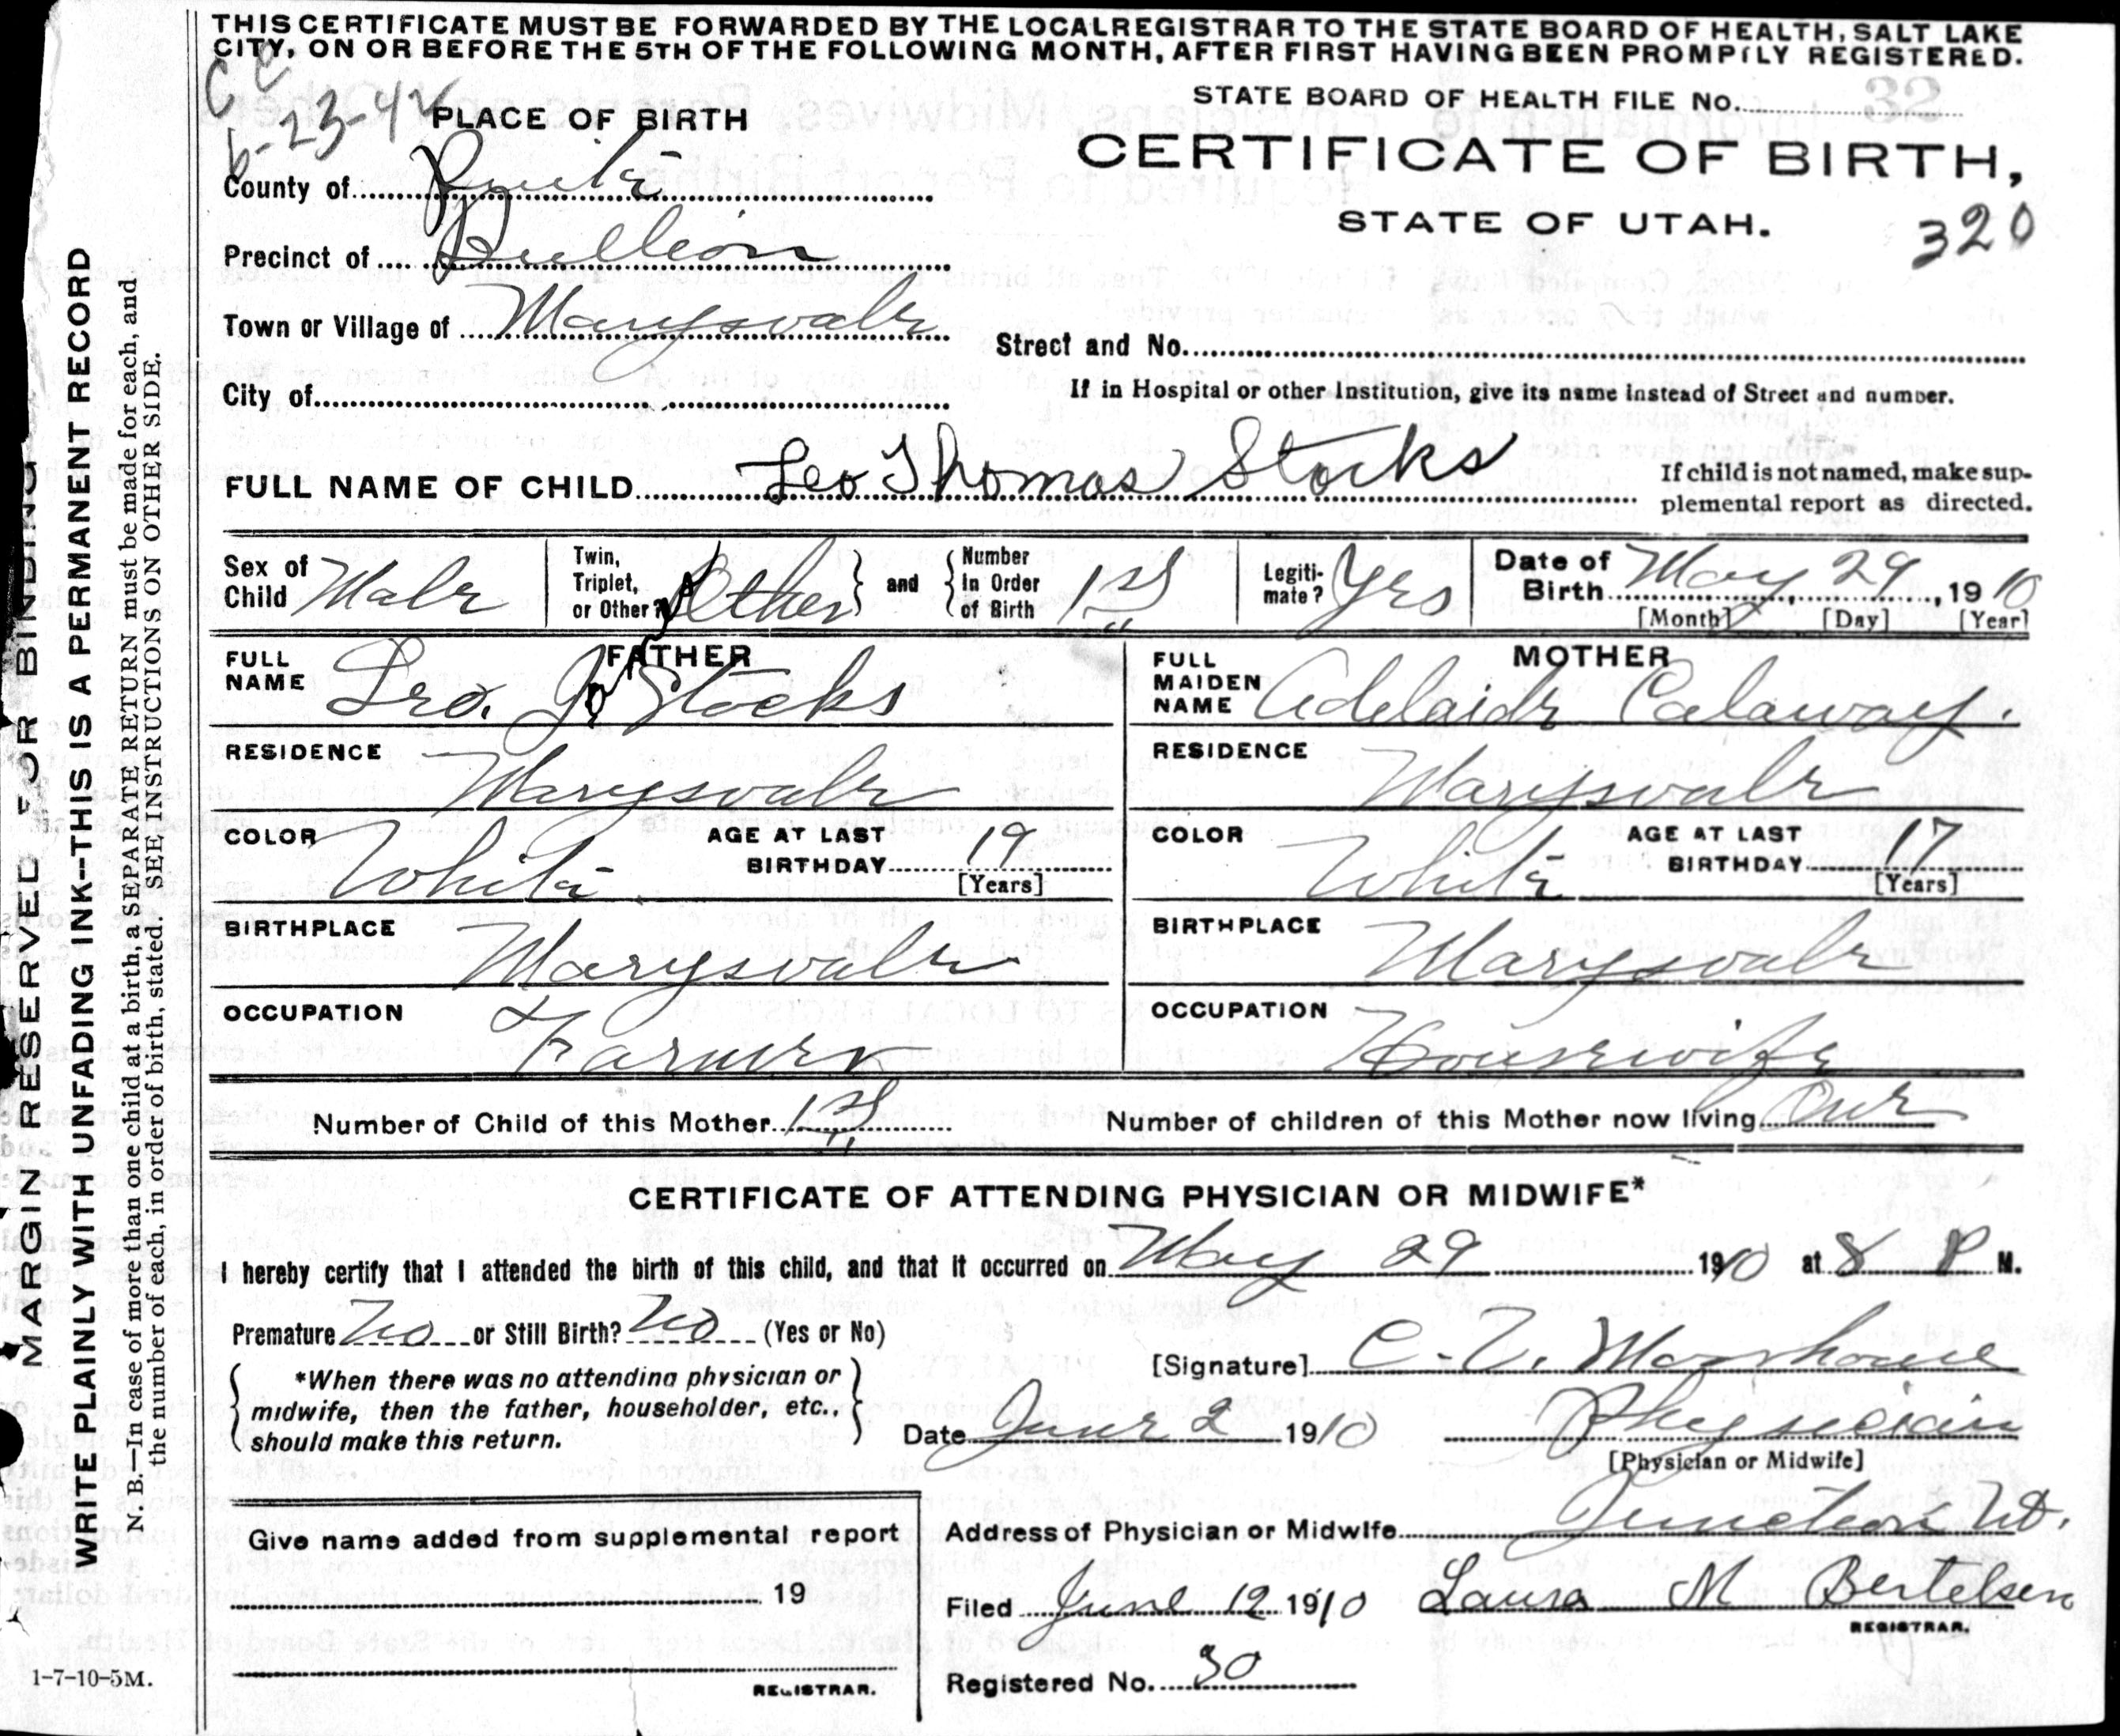 THIS CERTIFICATE MUST BE FORWARDED BY THE LOCAL REGISTRAR TO THE STATE BOARD OF HEALTH, SALT LAKE
CITY, ON OR BEFORE THE 5TH OF THE FOLLOWING MONTH, AFTER FIRST HAVING BEEN PROMPTLY REGISTERED.
CC
6-23-42
STATE BOARD OF HEALTH FILE NO. 32
PLACE OF BIRTH
CERTIFICATE OF BIRTH,
STATE OF UTAH.
320
County of Piute
Precinct of Bullion
Town or Village of Marysvale
Street and No.
City of
If in Hospital or other Institution, give its name instead of Street and number.
FULL NAME OF CHILD Leo Thomas Stocks
If child is not named, make sup-
plemental report as directed.
Sex of Child Male
Twin, Triplet, or Other? Other
and Number in Order of Birth 1st
Legiti-mate? Yes
Date of Birth May 29, 1910
[Month] [Day] [Year]
FATHER
MOTHER
FULL NAME Leo. J. Stocks
FULL MAIDEN NAME Adelaide Calaway.
RESIDENCE Marysvale
RESIDENCE Marysvale
COLOR White AGE AT LAST BIRTHDAY 19 [Years]
COLOR White AGE AT LAST BIRTHDAY 17 [Years]
BIRTHPLACE Marysvale
BIRTHPLACE Marysvale
OCCUPATION Farmer
OCCUPATION Housewife
Number of Child of this Mother 1st
Number of children of this Mother now living One
CERTIFICATE OF ATTENDING PHYSICIAN OR MIDWIFE*
I hereby certify that I attended the birth of this child, and that it occurred on May 29 1910 at 8 P M.
Premature No or Still Birth? No (Yes or No)
[Signature] C. V.
*When there was no attending physician or
midwife, then the father, householder, etc.,
should make this return.
Date June 2 1910
Physician
[Physician or Midwife]
Address of Physician or Midwife Junction Ut.
Give name added from supplemental report
19
REGISTRAR.
Filed June 12 1910 Laura M Bertelsen
REGISTRAR.
Registered No. 30
1-7-10-5M.
MARGIN RESERVED FOR BINDING
WRITE PLAINLY WITH UNFADING INK--THIS IS A PERMANENT RECORD
N. B.—In case of more than one child at a birth, a SEPARATE RETURN must be made for each, and
the number of each, in order of birth, stated. SEE INSTRUCTIONS ON OTHER SIDE.